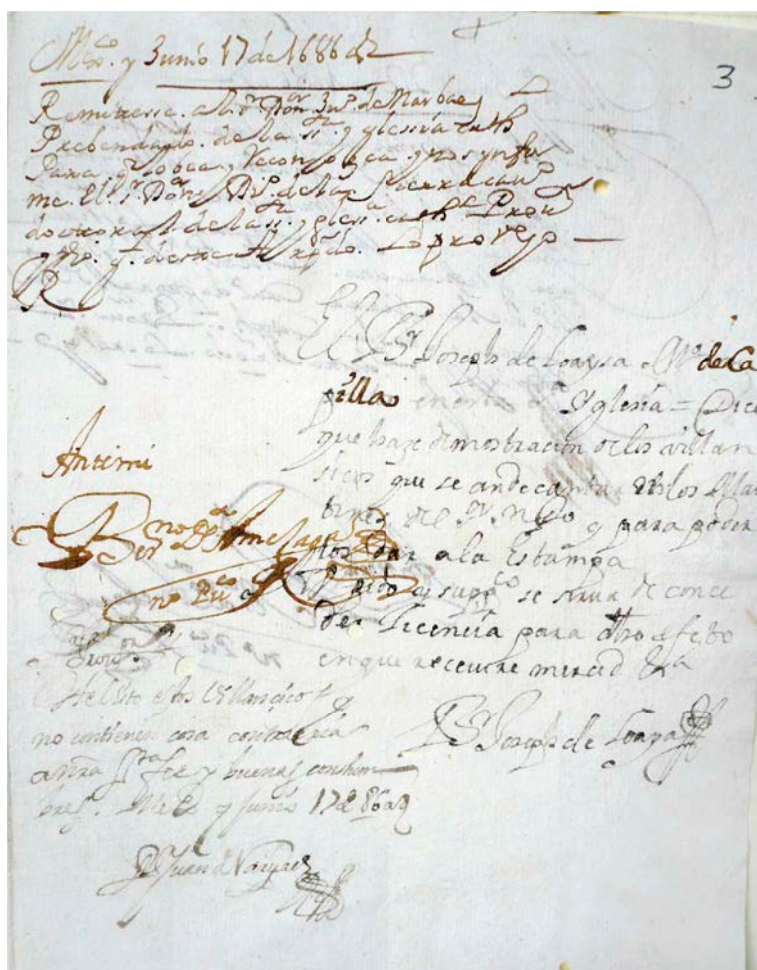 Mex.co y Junio 17 de 1686 as
3
Remitesse. al s.or Don Ju.o de Narbaez
Prebendado. de la s.ta yglessia cath
Para q. lo vea, y reconozca y nos ynfor
me. El s.r D.or Don de la Sierra
doctoral. de la s.ta ygless.a cath.l Prou.or
y Vic.o g. deste Arçbdo. Lo proveyo
El B.r Joseph de Loaysa Mo. de Ca
pilla en esta S.ta Yglesia = Dice
que haze demostracion de los villan
sicos que se an de cantar en los Mai
tines de S.r y para poder
los dar a la Estampa
A Vmd pido y supp.co se sirva de conce
der Licencia para dho efecto
en que recevire merced &a
B.r Joseph de Loaysa
Antemi
Ber.no de Amesaga
no. Pu.co
S.or Prouis.or
He visto estos Villancicos y
no contienen cosa contraria
a nra s.ta fee y buenas costum
bres. Mex.co y Junio 17 de 86 as
D. Juan de Narvaez